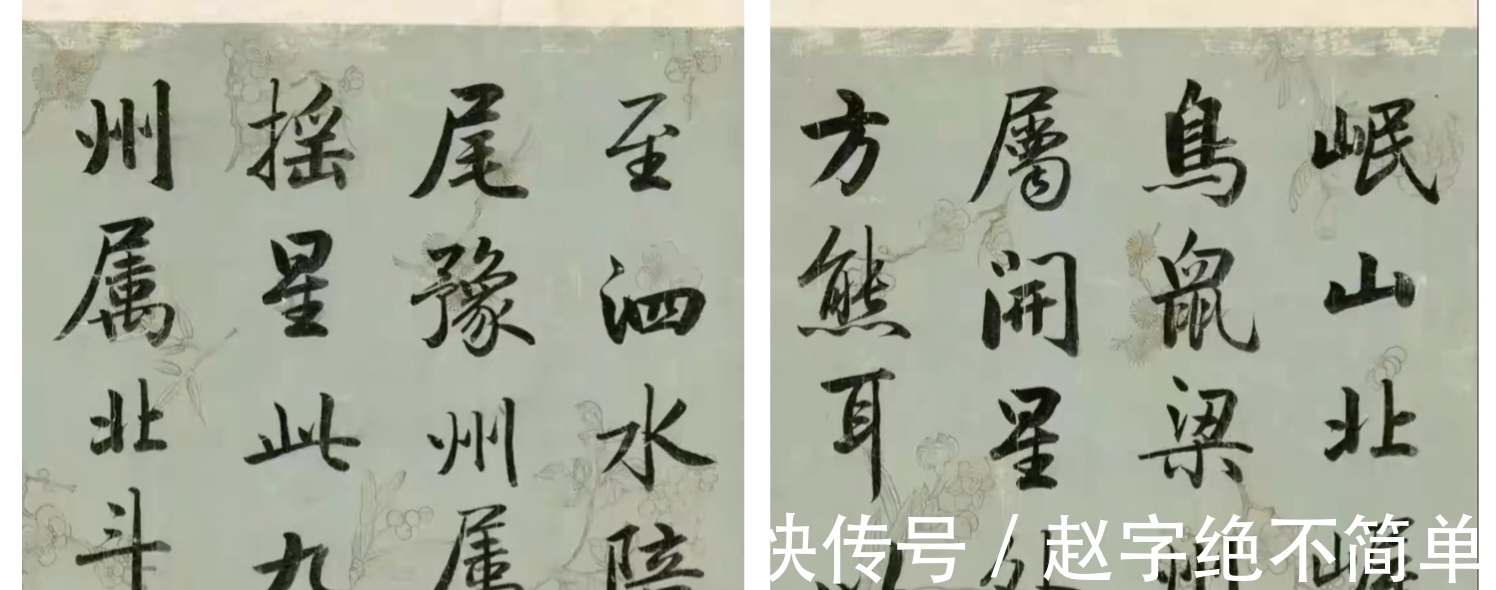 岷山北
鳥鼠梁州
屬開星外
方熊耳以
至泗水陪
尾豫州属
摇星此九
州属北斗
快传号 / 赵字绝不简单